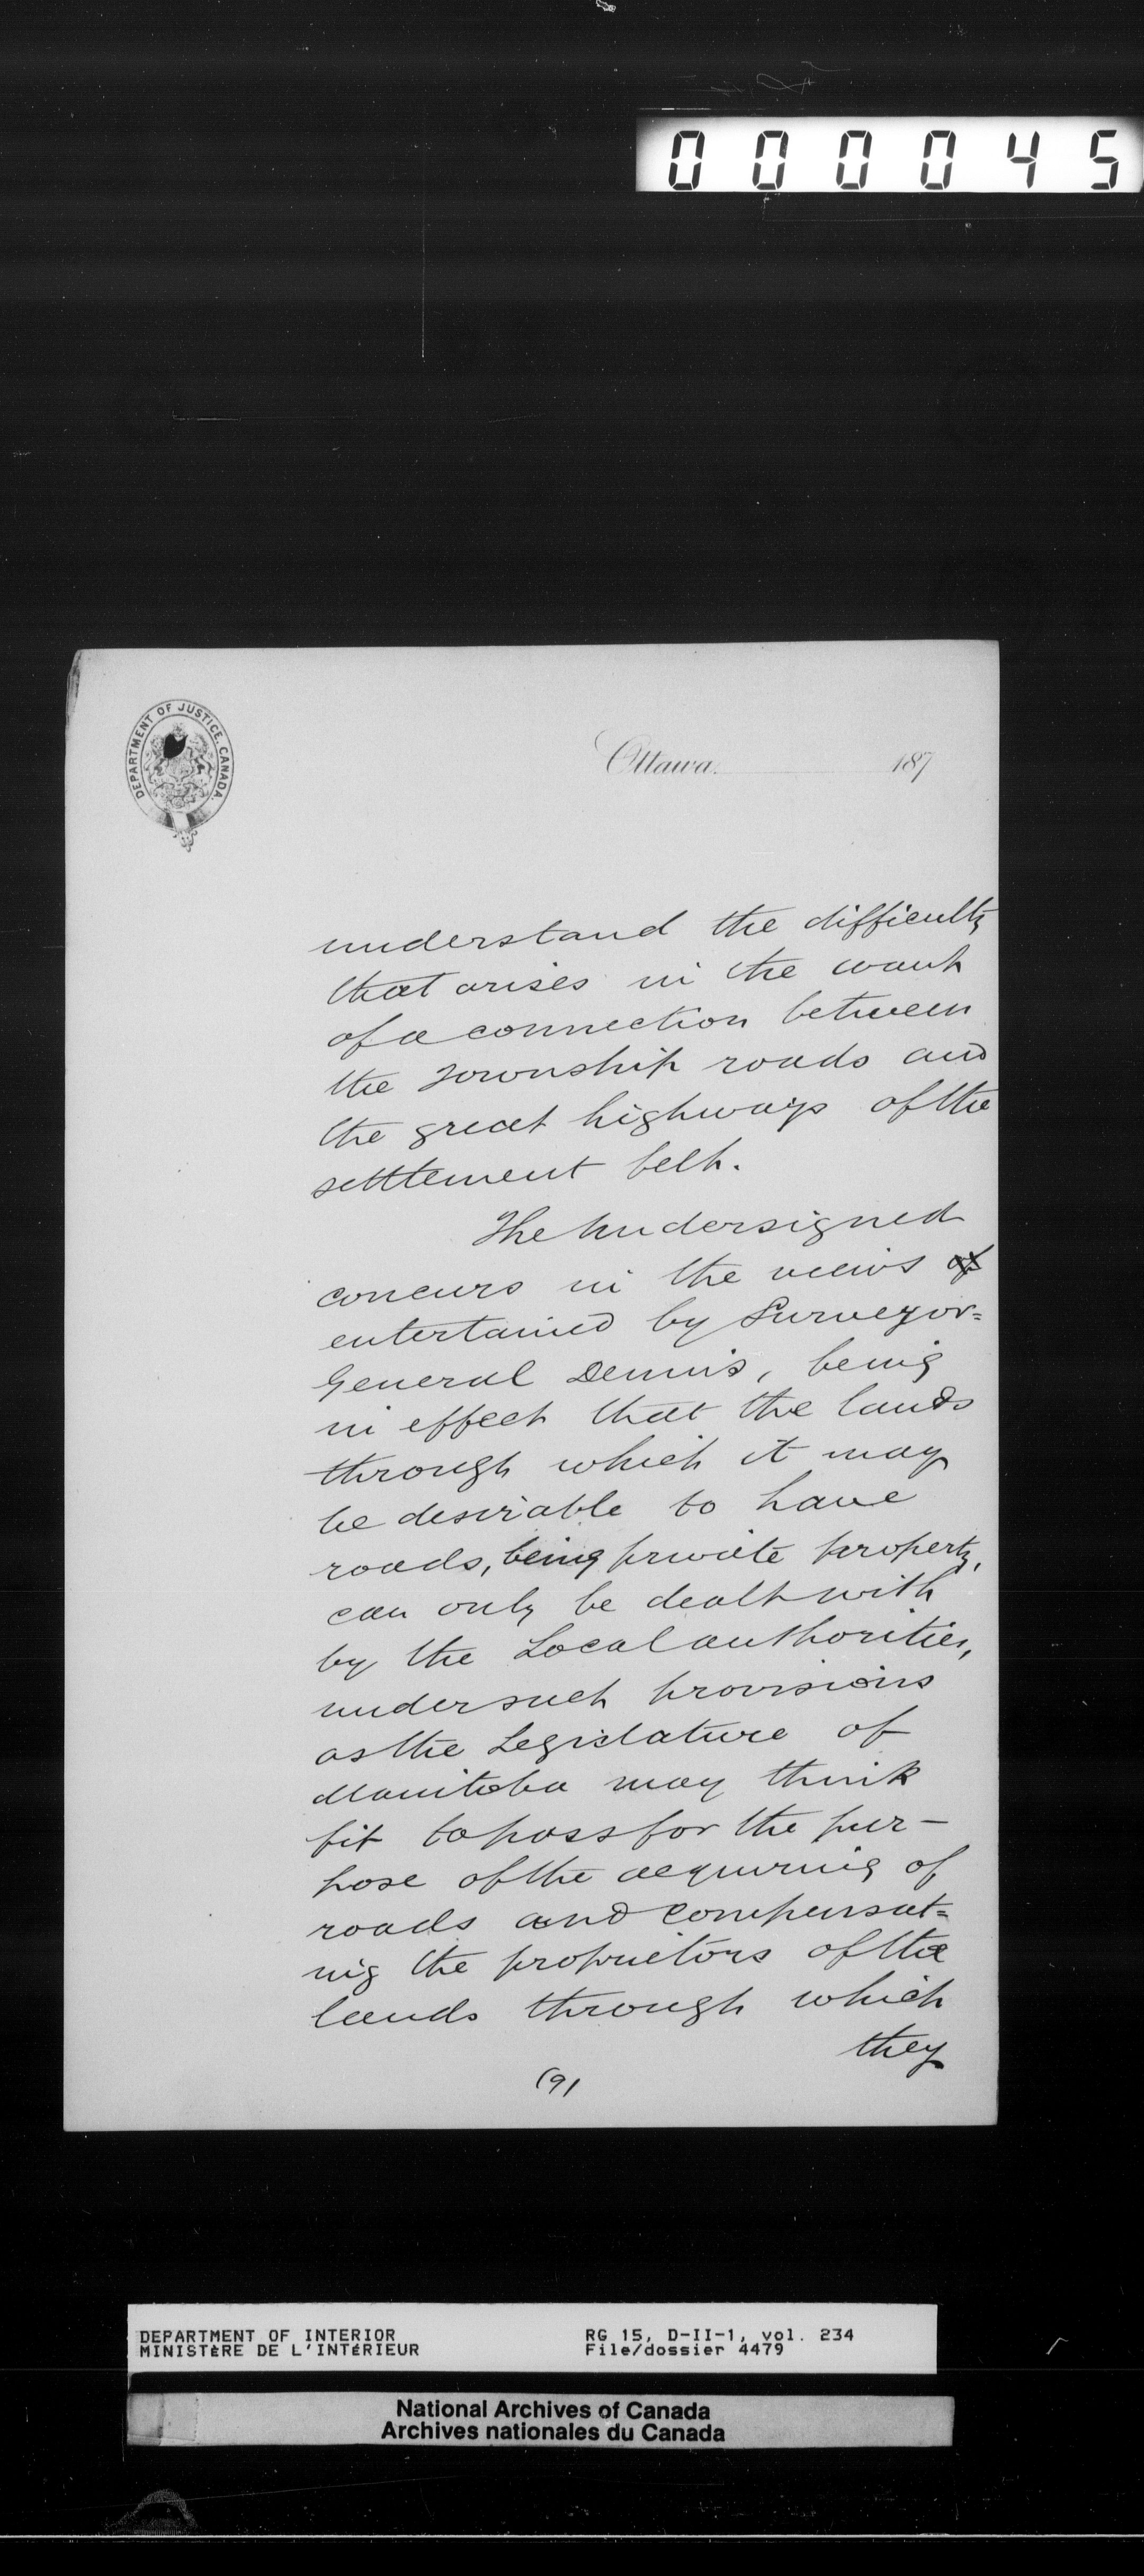 000045
DEPARTMENT OF JUSTICE, CANADA.
Ottawa. 187
understand the difficulty
that arises in the want
of a connection between
the Township roads and
the great highways of the
settlement belt.
The Undersigned
concurs in the views of
entertained by Surveyor=
General Dennis, being
in effect that the lands
through which it may
be desirable to have
roads, being private property,
can only be dealt with
by the Local authorities,
under such provisions
as the Legislature of
Manitoba may think
fit to pass for the pur-
pose of the acquiring of
roads and compensat=
ing the proprietors of the
lands through which
they
(9)
DEPARTMENT OF INTERIOR RG 15, D-II-1, vol. 234
MINISTÈRE DE L'INTÉRIEUR File/dossier 4479
National Archives of Canada
Archives nationales du Canada